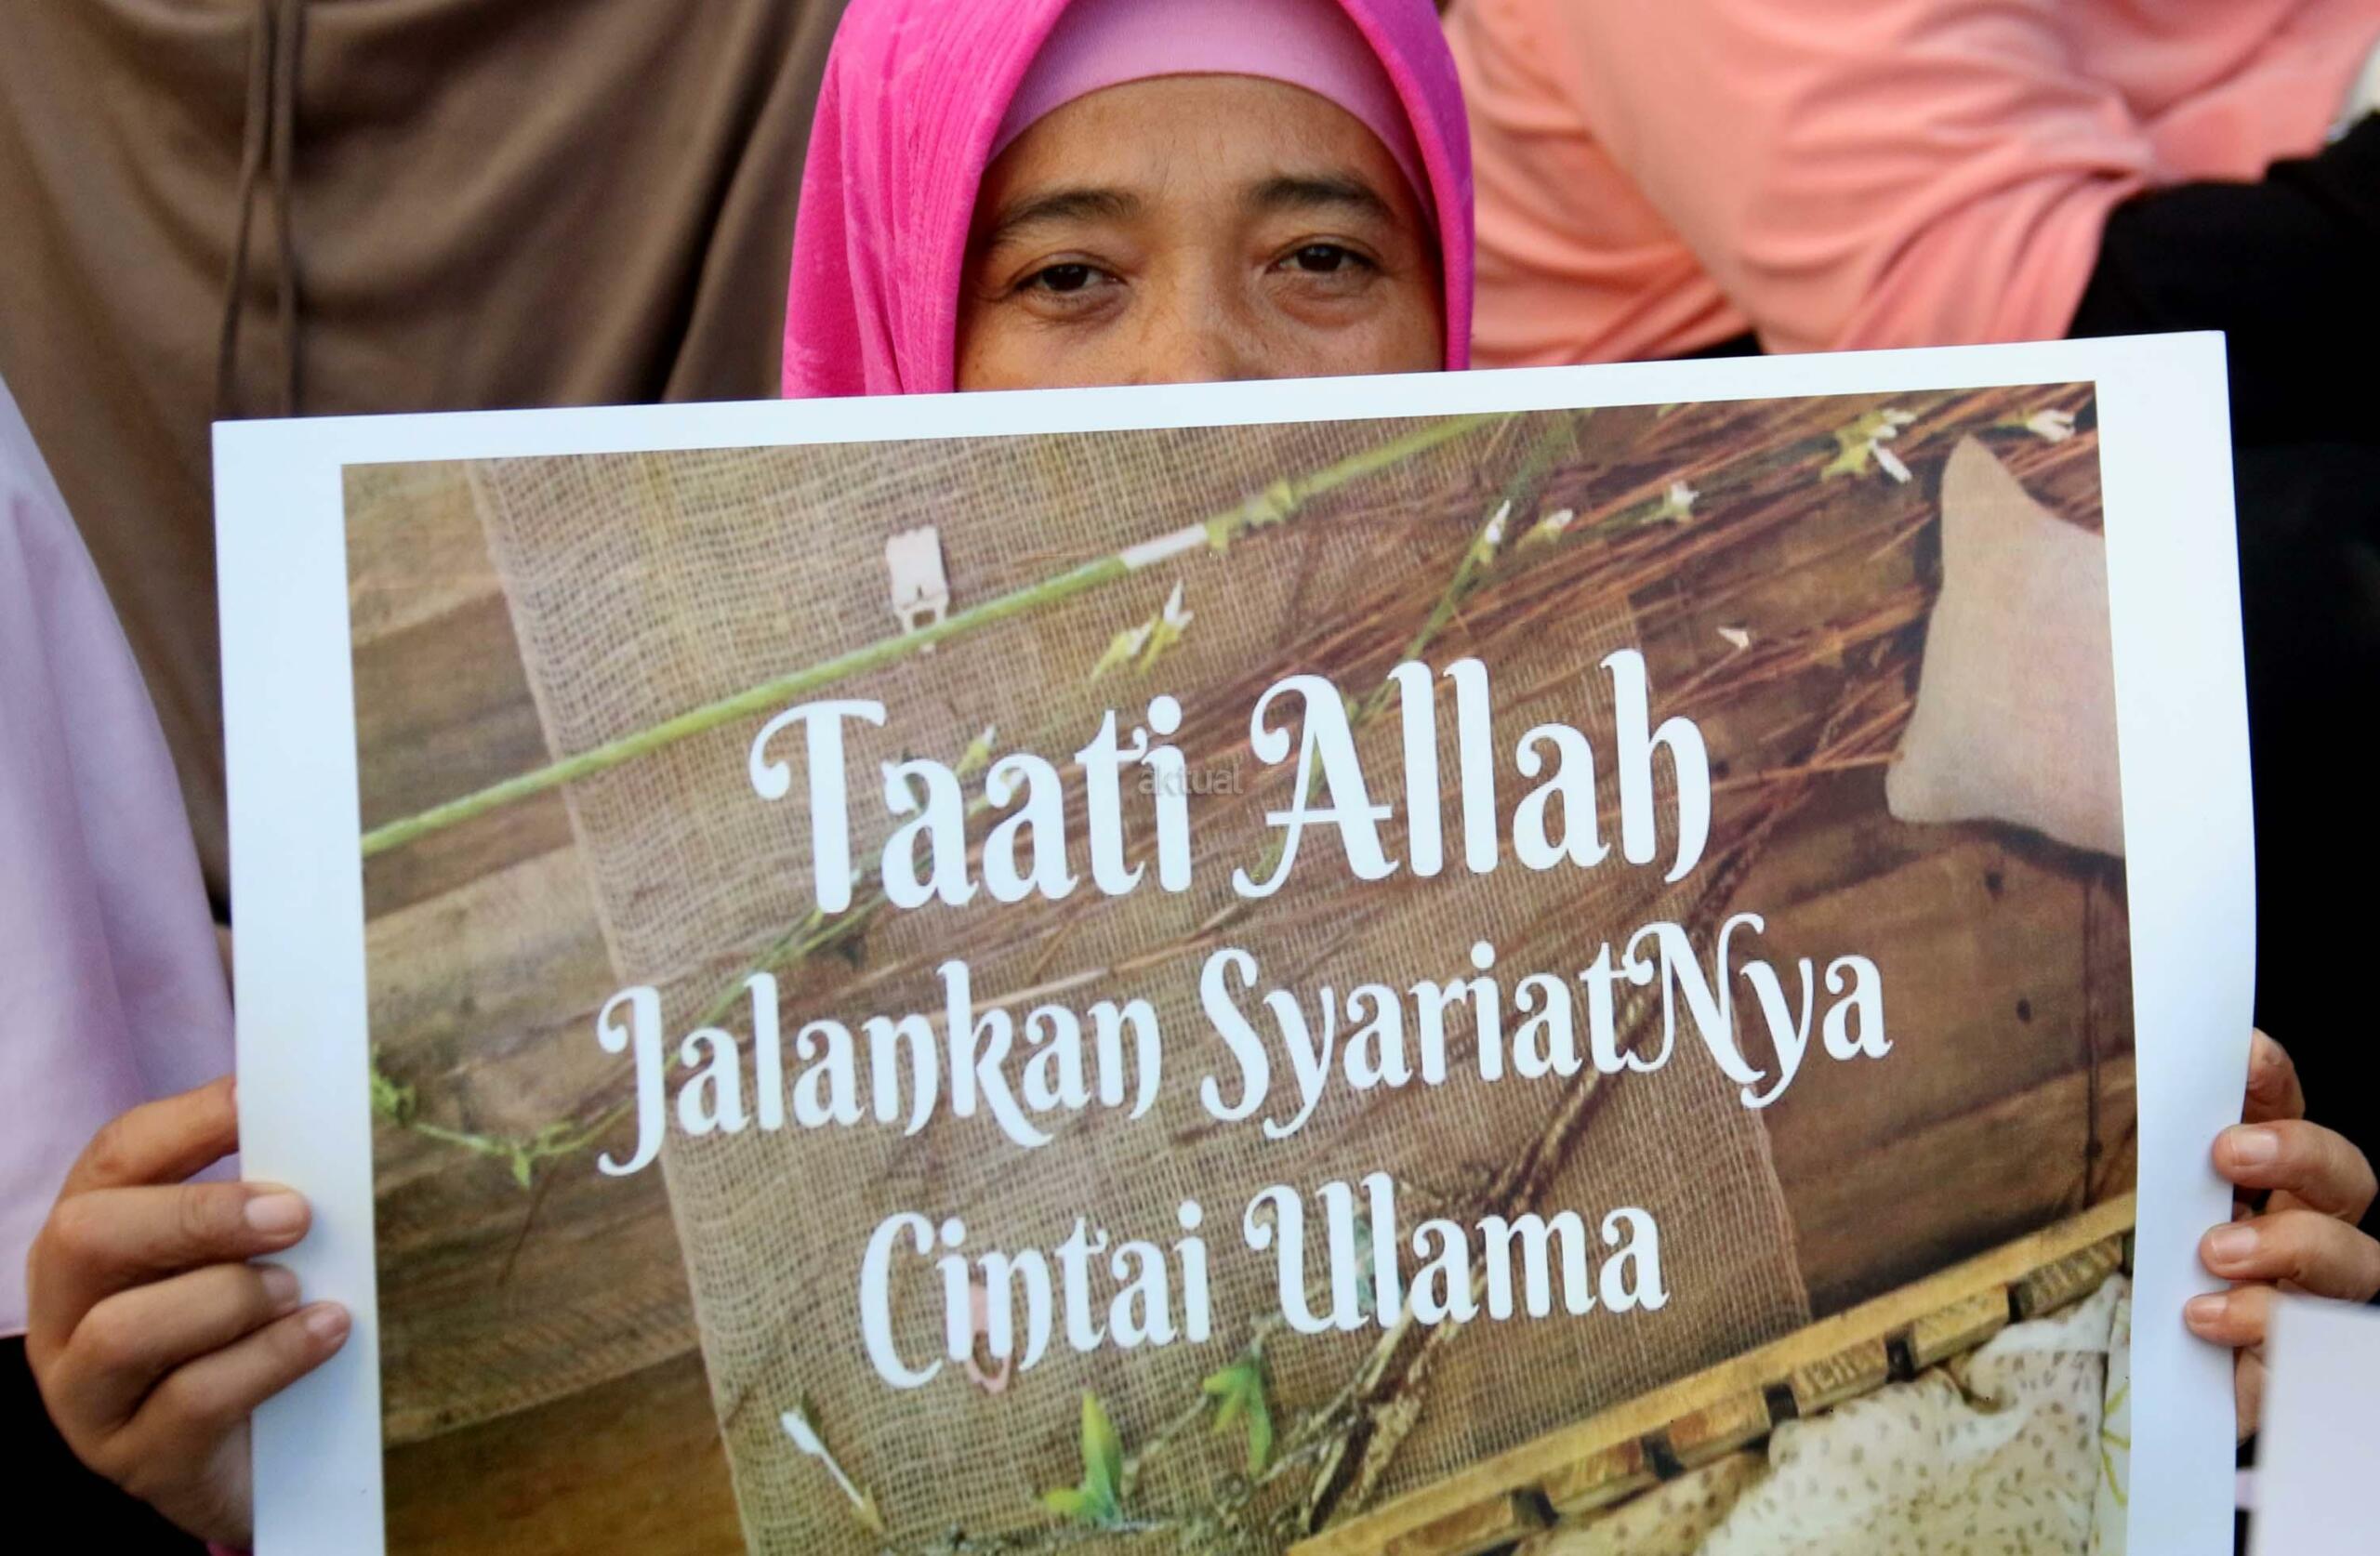 Taati Allah
aktual
Jalankan SyariatNya
Cintai Ulama